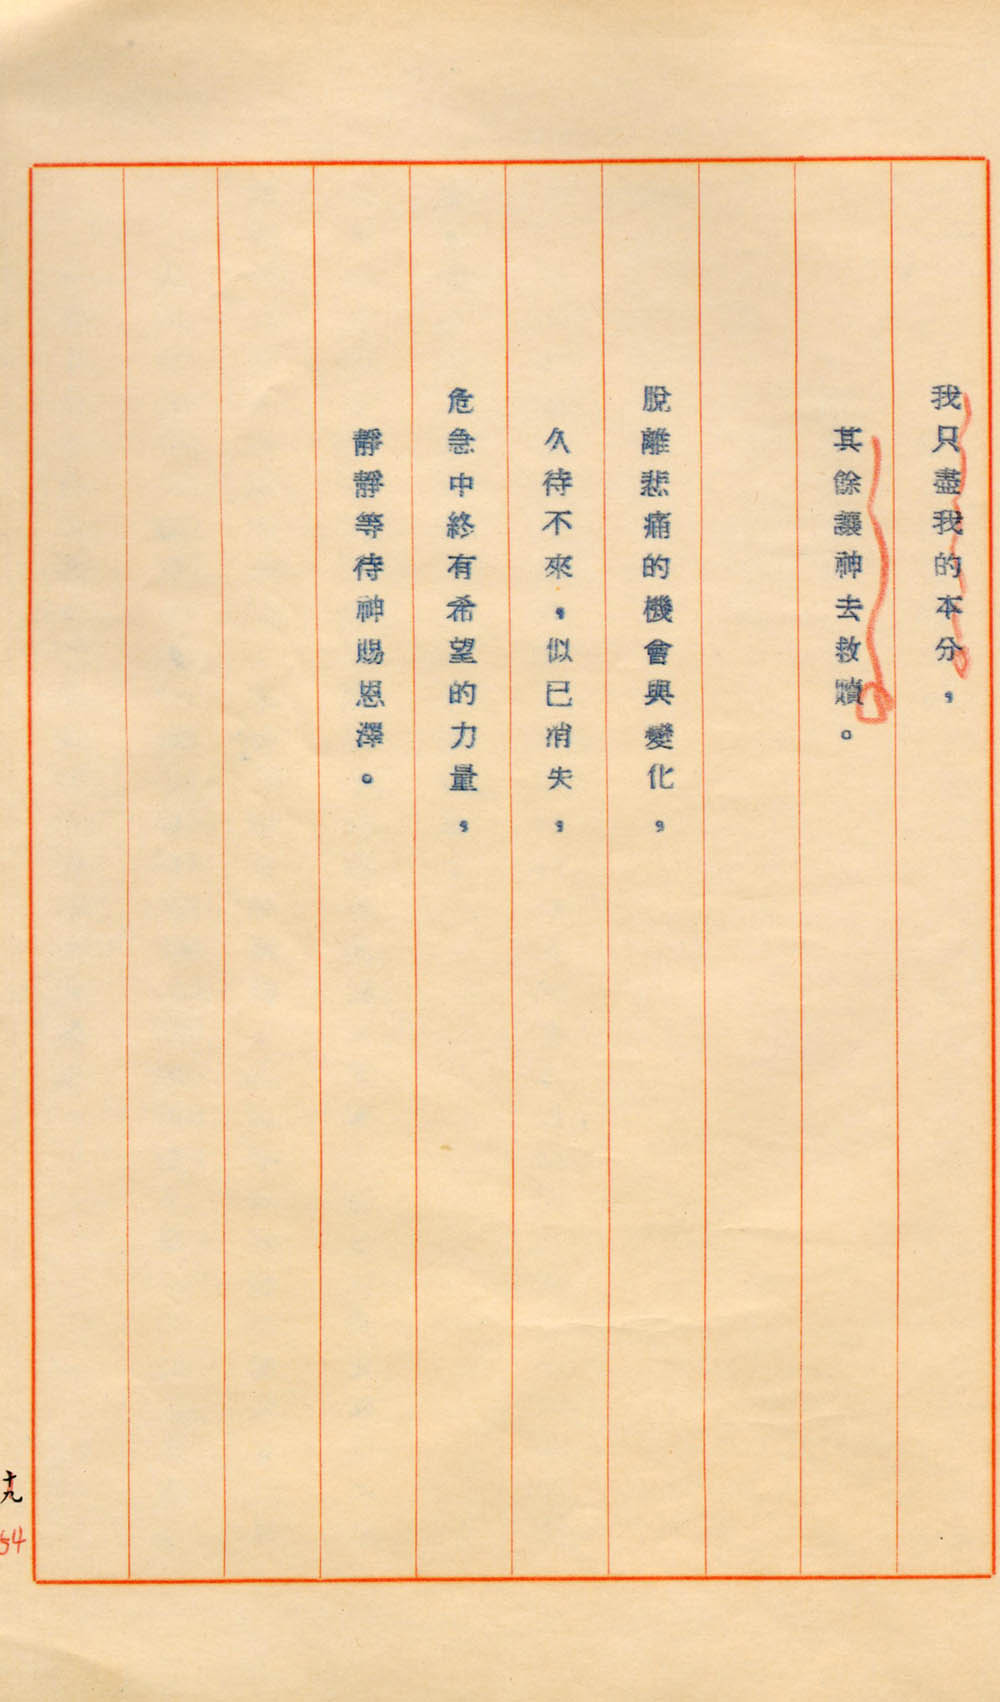 我只盡我的本分，
其餘讓神去救贖。
脫離悲痛的機會與變化，
久待不來，似已消失，
危急中終有希望的力量，
靜靜等待神賜恩澤。
十九
54